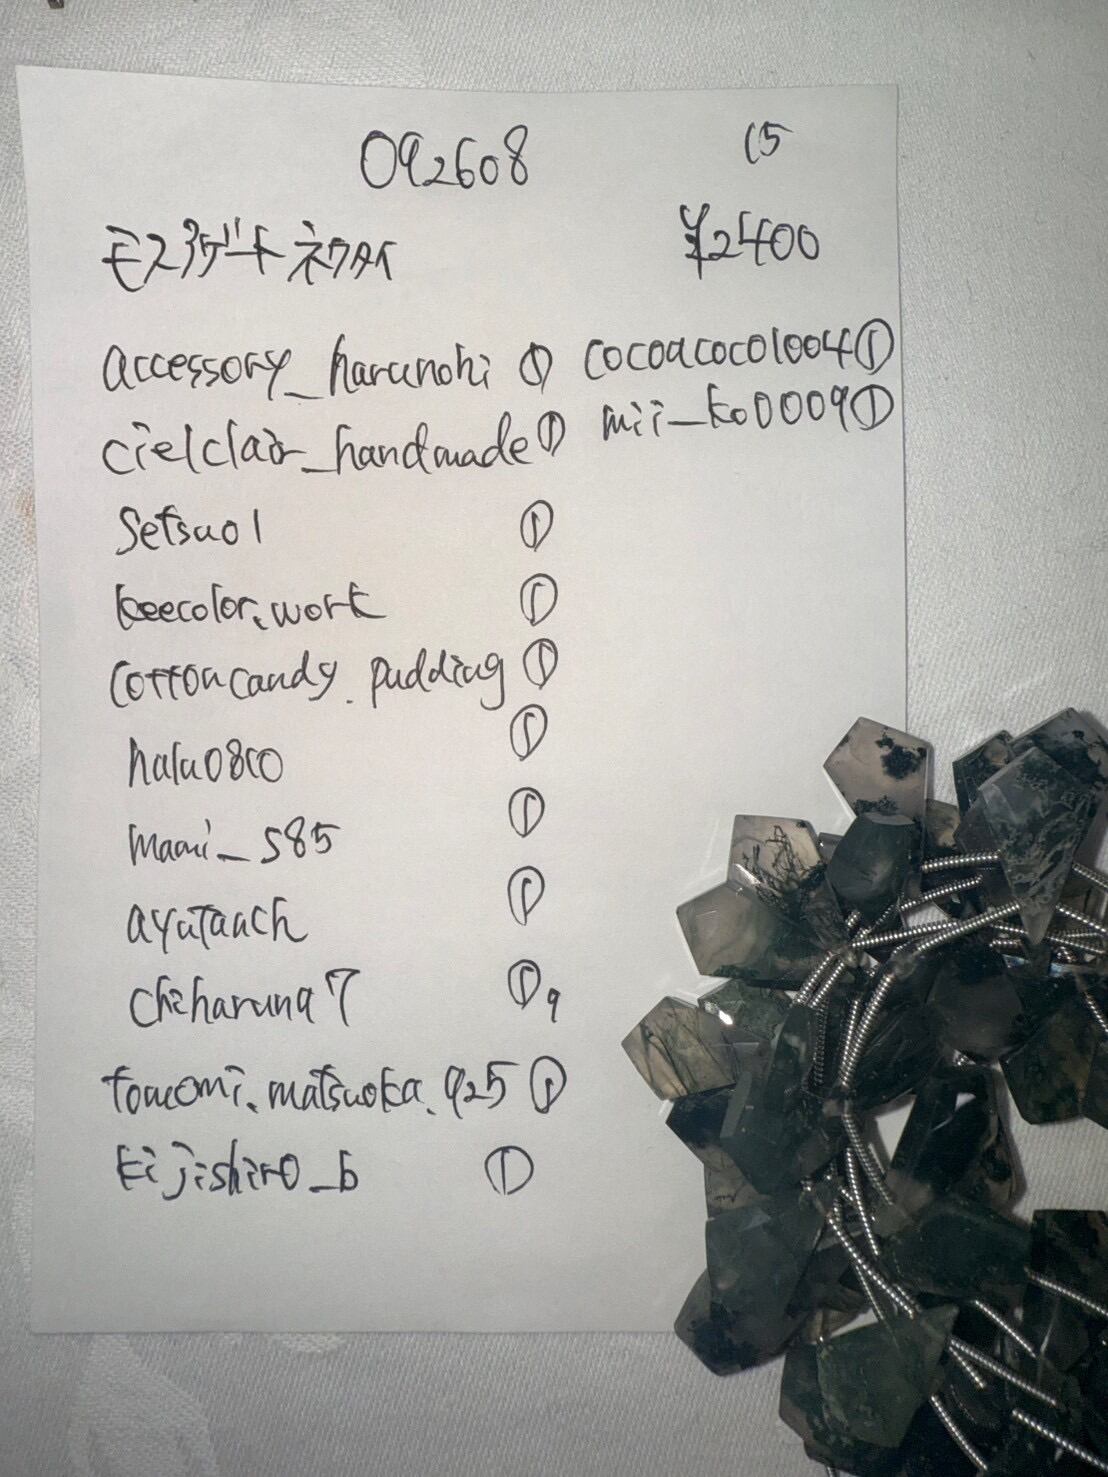 092608 15
モスアゲート ネクタイ ¥2400
accessory_harunohi ① cocoacoco1004①
cielclair_handmade① mii_ko0009①
setsuo1 ①
beecolor.work ①
cottoncandy.pudding ①
halu0800 ①
mami_s85 ①
ayutaach ①
chiharuna7 ①9
tomomi.matsuoka.925 ①
kijishiro_b ①